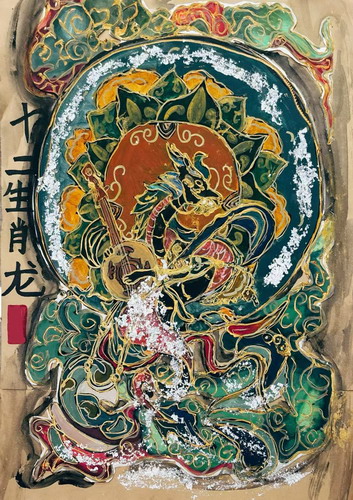 十二生肖龙